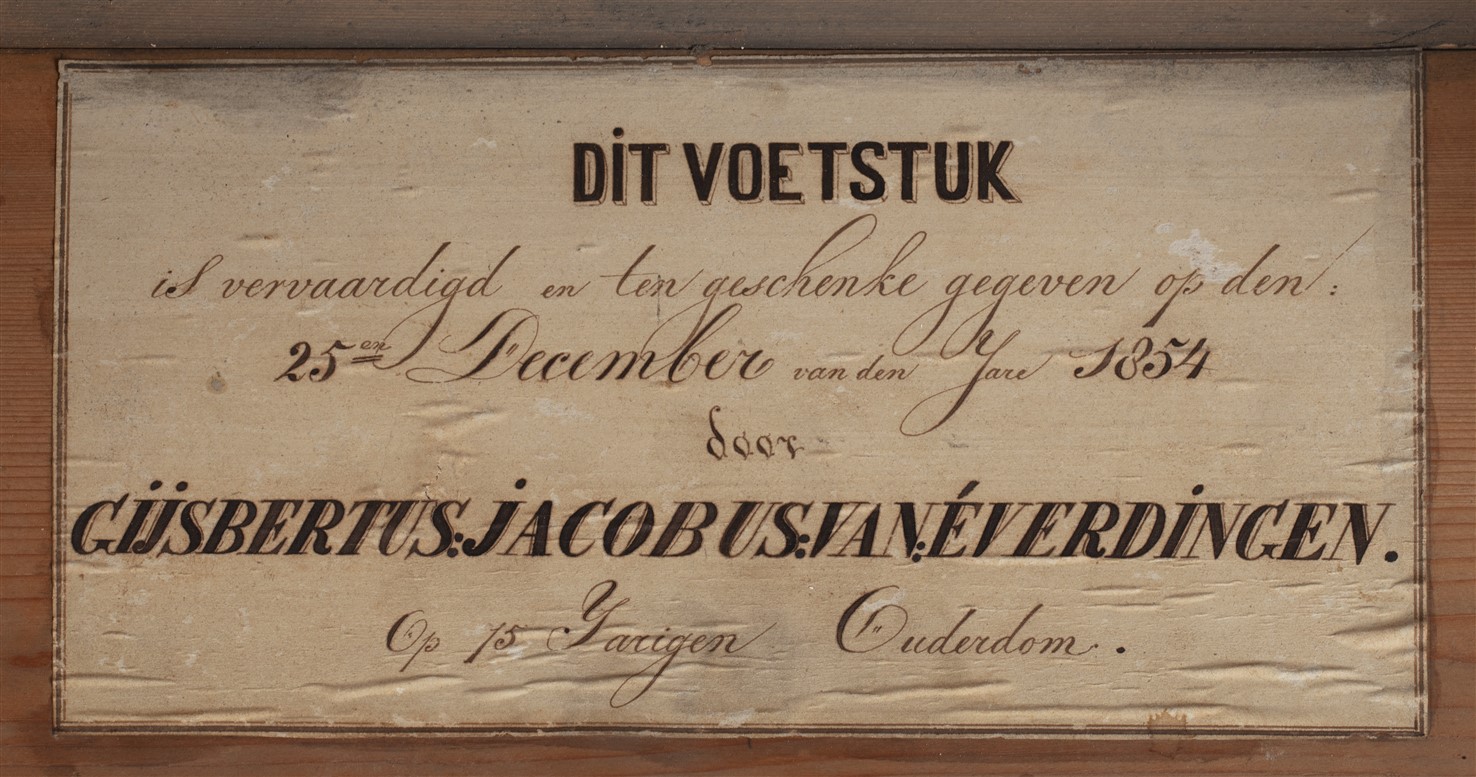 DIT VOETSTUK
is vervaardigd en ten geschenke gegeven op den:
25en December van den Jare 1854
door
GIJSBERTUS: JACOBUS: VAN: ÉVERDINGEN.
Op 75 Jarigen Ouderdom.